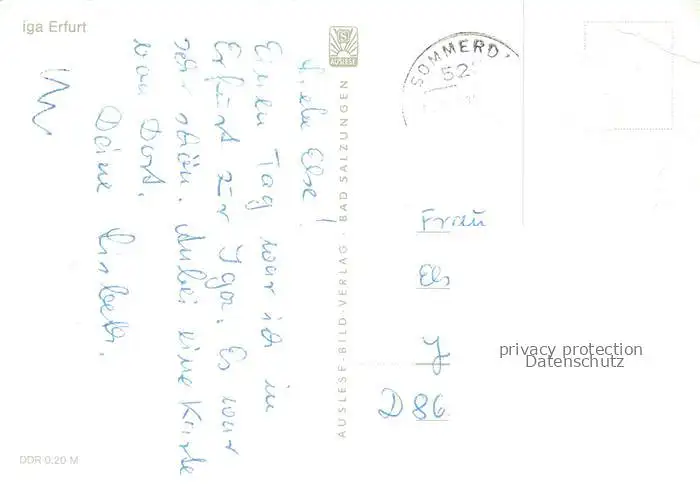 iga Erfurt
Liebe Else!
Einen Tag war ich in
Erfurt zur Iga. Es war
sehr schön. Anbei eine Karte
von Dort.
Deine Lisbeth.
AUSLESE
AUSLESE-BILD-VERLAG · BAD SALZUNGEN
SÖMMERD
52
Frau
Els
J
D 86
privacy protection
Datenschutz
DDR 0,20 M